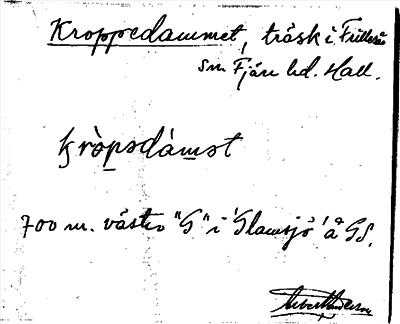 Kroppedammet, träsk i Frillesås
sn Fjäre hd. Hall.
kròpsdàmot
700 m. väster "G" i 'Glamsjö' å GS.